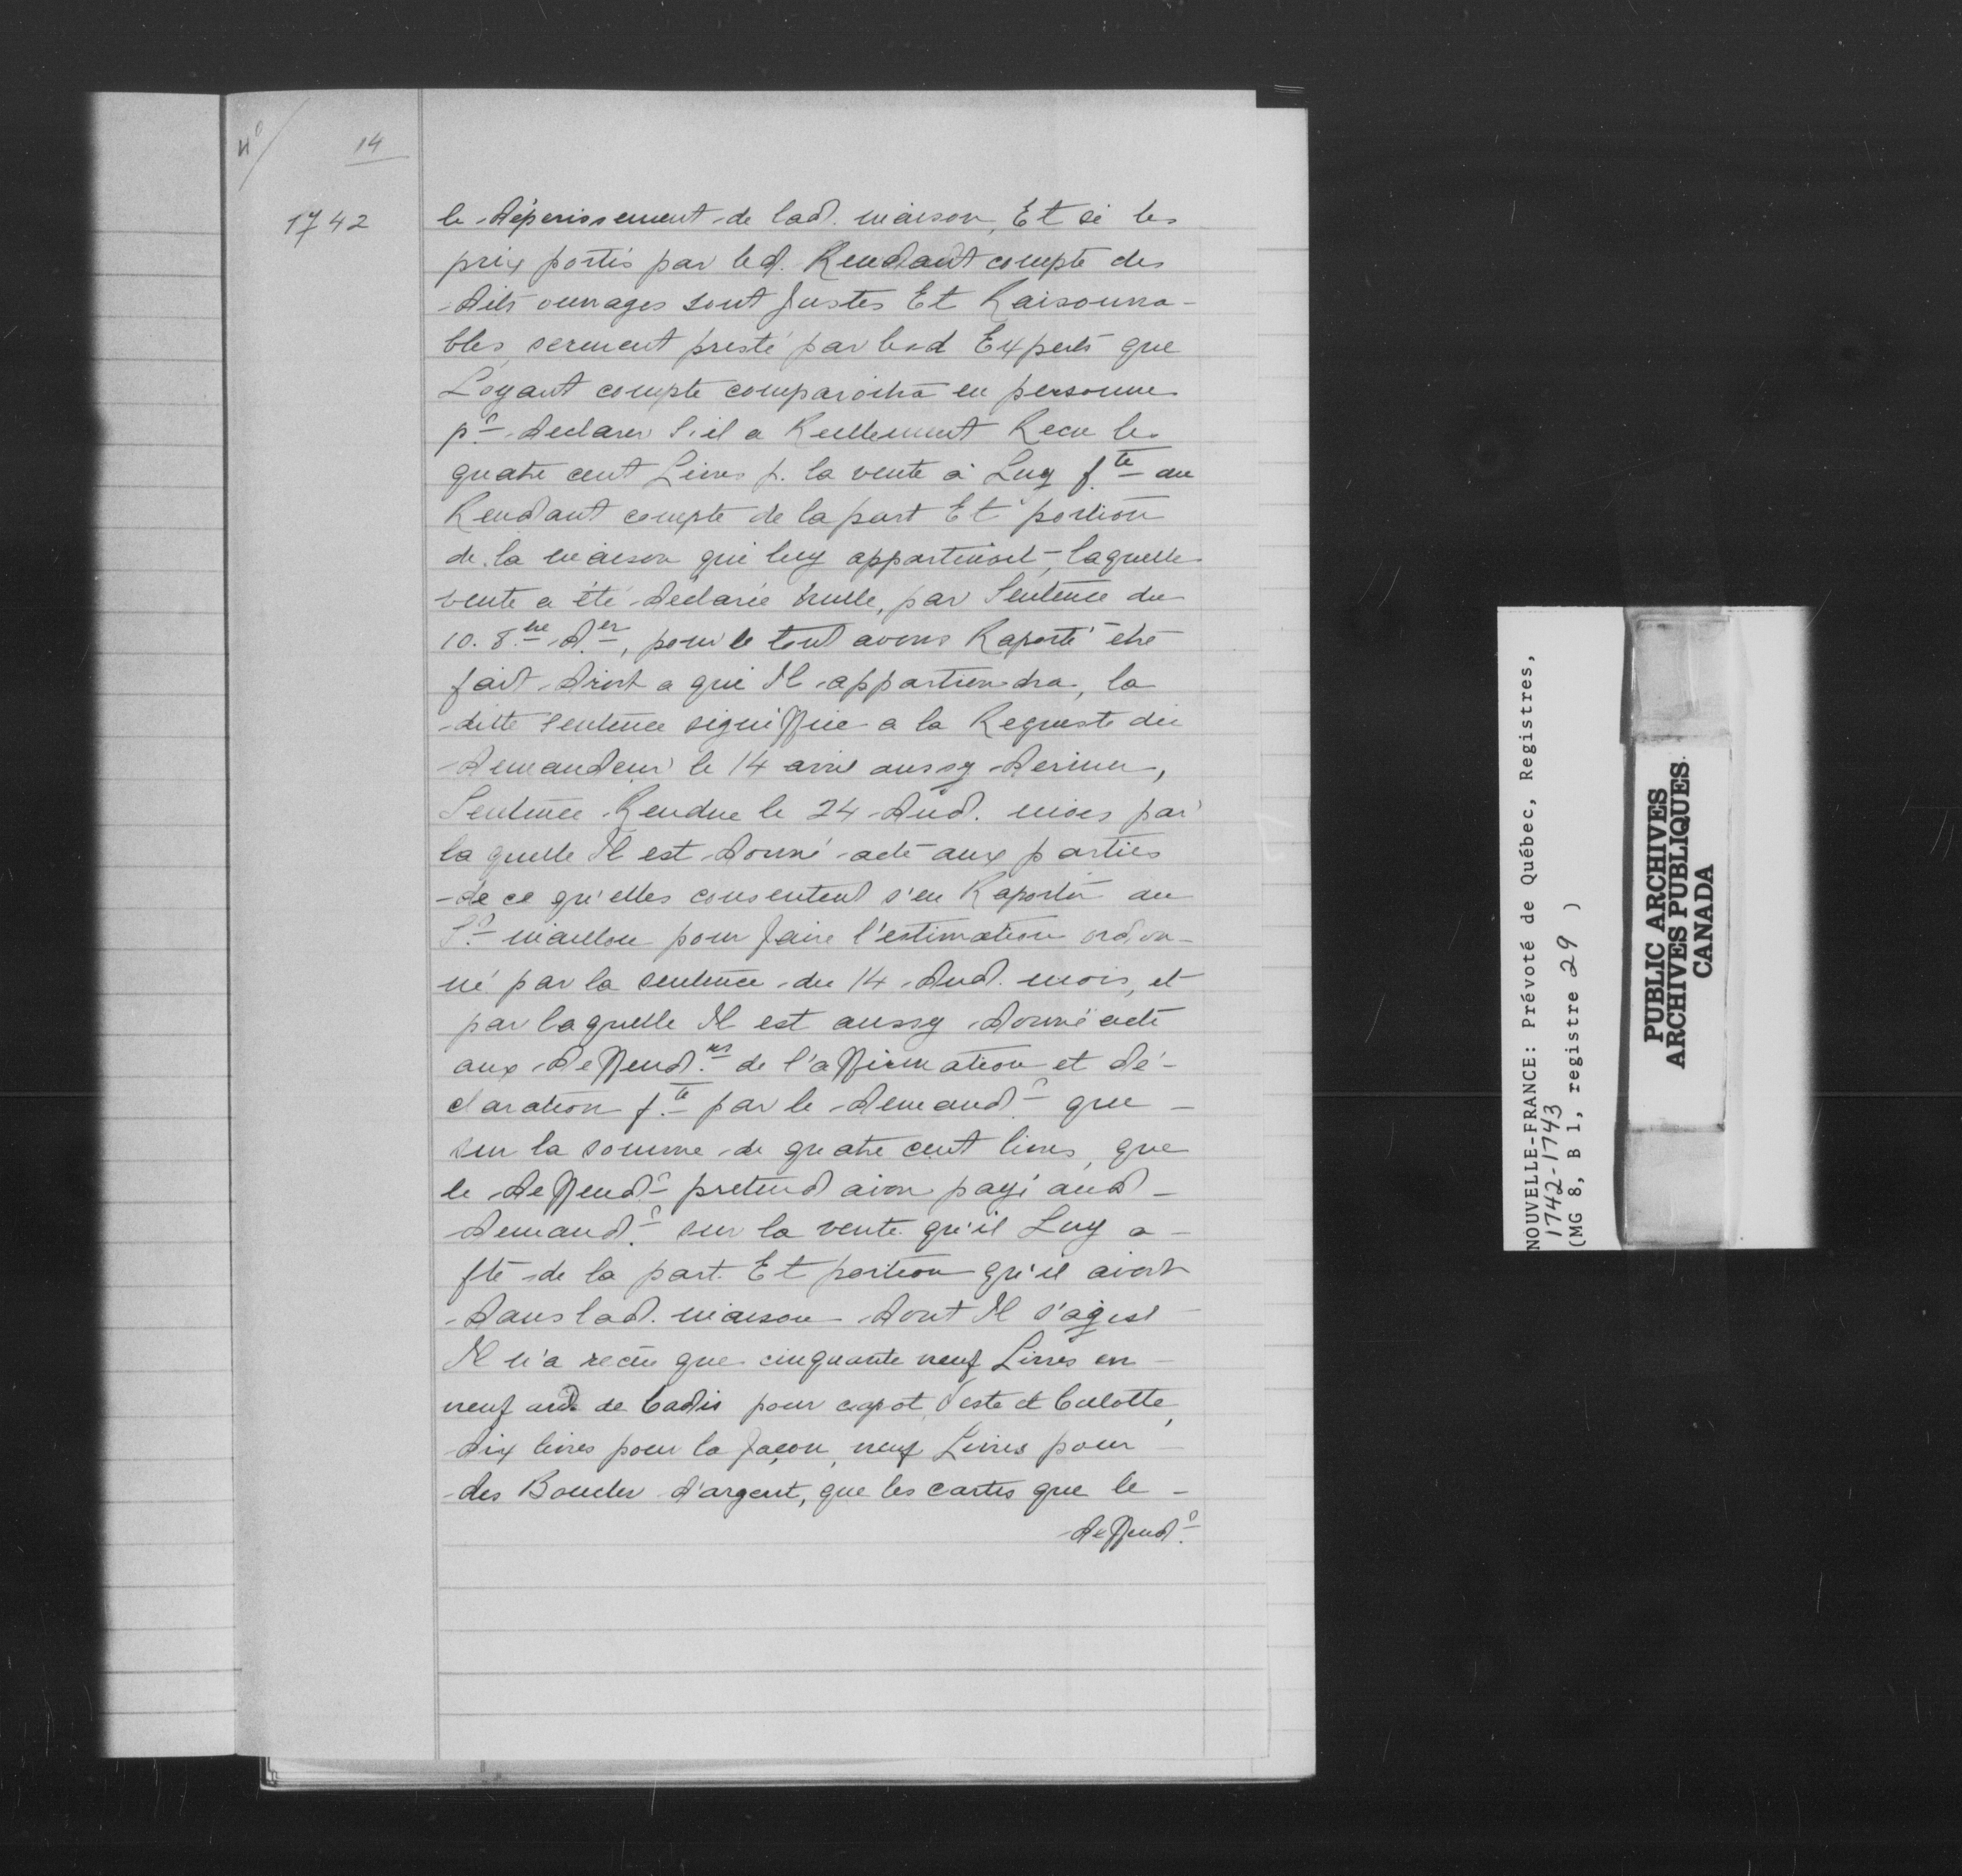 No 14
1742
le déperissement de lad. maison, Et si les
prix portés par led. Rendant compte des
dits ouvrages sont Justes Et Raisonna-
bles, serment presté par lesd Experts que
L'oyant compte comparoitra en personne
pr declarer S'il a Reellement Recu les
quatre cent Livres p. la vente à Luy fte au
Rendant compte de la part Et portion
de la maison qui luy appartenoit, laquelle
vente a été déclarée nulle, par Sentence du
10. 8bre der, pour le tout avons Raporté être
fait droit a qui Il appartiendra, la
ditte sentence signiffiée a la Requeste du
demandeur le 14 avril aussy dernier,
Sentence Rendue le 24 dud. mois par
laquelle Il est donné acte aux parties
de ce qu'elles consentent s'en Raporter au
Sr maillou pour faire l'estimation ordon-
né par la sentence du 14 dud. mois, et
par laquelle Il est aussy donné acte
aux deffend.rs de l'affirmation et dé-
claration f.te par le demandr que -
sur la somme de quatre cent livres, que
le deffendr pretend avoir payé aud -
demand.r sur la vente qu'il Luy a -
fte de la part Et portion qu'il avoit
dans lad. maison dont Il s'agist
Il n'a reçu que cinquante neuf Livres en -
neuf de Cadis pour capot, Veste et Culotte,
dix livres pour la façon, neuf Livres pour -
des Boucles d'argent, que les cartes que le -
deffend.r
NOUVELLE-FRANCE: Prévoté de Québec, Registres,
1742-1743
(MG 8, B 1, registre 29 )
PUBLIC ARCHIVES
ARCHIVES PUBLIQUES
CANADA